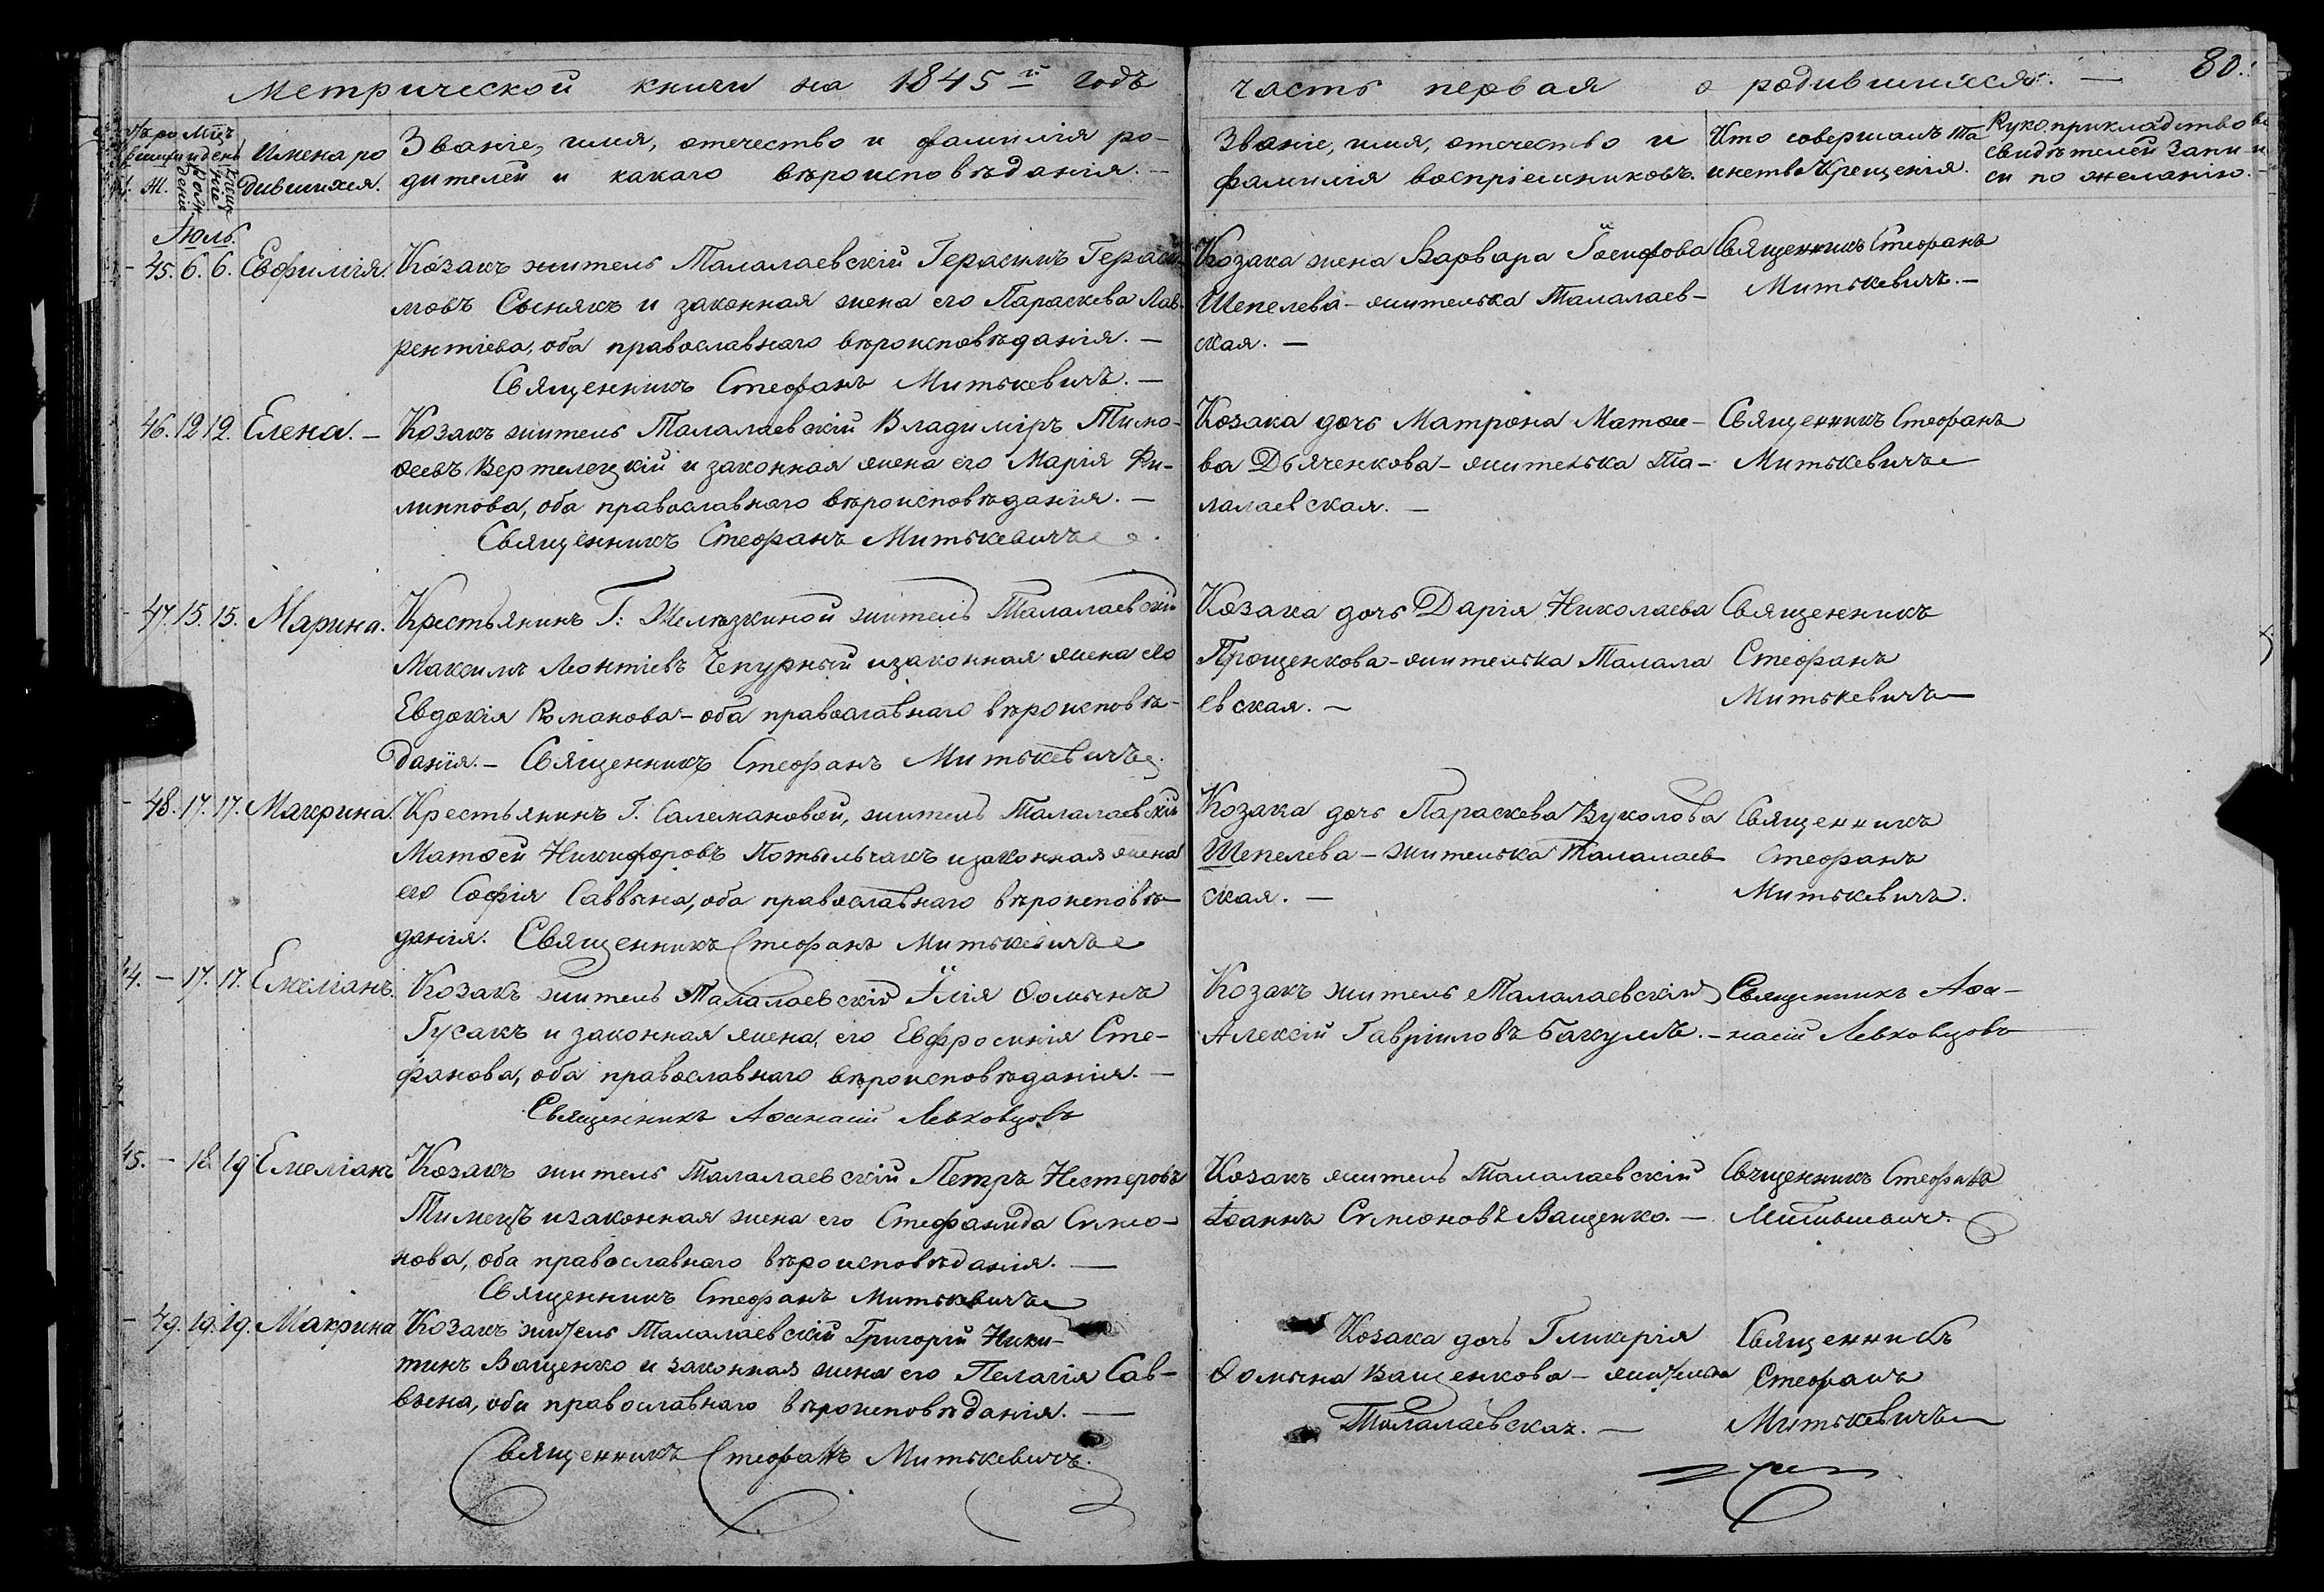 Метрической книги на 1845й годъ
часть первая о родившихся. —
80.
Имена ро
дившихся.
Званіе, имя, отечество и фамилія ро-
дителей и какаго вѣроисповѣданія. —
Званіе, имя, отечество и
фамилія воспріемниковъ.
Кто совершалъ Та
инство Крещенія.
Рукоприкладство
свидѣтелей запи
си по желанію. —
Іюль.
- 45. 6. 6. Евфимія.
Козакъ житель Талалаевскій Герасимъ Гераси-
мовъ Сынякъ и законная жена его Параскева Лав-
рентіева, оба православнаго вѣроисповѣданія. —
Священникъ Стефанъ Митькевичъ. —
Козака жена Варвара Іосифова
Шепелева - жителька Талалаев-
ская. —
Священникъ Стефанъ
Митькевичъ. —
46. 12 12. Елена. —
Козакъ житель Талалаевскій Владиміръ Тимо-
ѳеевъ Вертелецкій и законная жена его Марія Фи-
липпова, оба православнаго вѣроисповѣданія. —
Священникъ Стефанъ Митькевичъ
Козака дочь Матрона Матѳее-
ва Дьяченкова - жителька Та-
лалаевская. —
Священникъ Стефанъ
Митькевичъ
- 47. 15. 15. Марина.
Крестьянинъ Г: Желѣзкиной житель Талалаевскій
Максимъ Леонтіевъ Чепурный и законная жена его
Евдокія Романова - оба православнаго вѣроисповѣ-
данія. — Священникъ Стефанъ Митькевичъ
Козака дочь Дарія Николаева
Прощенкова - жителька Талала
евская. —
Священникъ
Стефанъ
Митькевичъ
- 48. 17. 17. Макрина.
Крестьянинъ Г. Салемановой, житель Талалаевскій
Матѳей Никифоровъ Потыльчакъ и законная жена
его Софія Саввына, оба православнаго вѣроисповѣ-
данія. Священникъ Стефанъ Митькевичъ
Козака дочь Параскева Вуколова
Шепелева - жителька Талалаев-
ская. —
Священникъ
Стефанъ
Митькевичъ.
44. — 17. 17. Емеліанъ.
Козакъ житель Талалаевскій Илія Ѳомынъ
Гусакъ и законная жена его Евфросинія Сте-
фанова, оба православнаго вѣроисповѣданія. —
Священникъ Аѳанасій Левковцовъ
Козакъ житель Талалаевскій
Алексій Гавріиловъ Бакумъ. —
Священникъ Аѳа-
насій Левковцовъ
45. — 18. 19. Емеліанъ
Козакъ житель Талалаевскій Петръ Нестеровъ
Тимецъ и законная жена его Стефанида Симо-
нова, оба православнаго вѣроисповѣданія. —
Священникъ Стефанъ Митькевичъ
Козакъ житель Талалаевскій
Іоаннъ Симоновъ Ващенко. —
Священникъ Стефанъ
Митькевичъ.
- 49. 19. 19. Макрина
Козакъ житель Талалаевскій Григорій Ники-
тинъ Ващенко и законная жена его Пелагія Сав-
вына, оба православнаго вѣроисповѣданія. —
Священникъ Стефанъ Митькевичъ.
Козака дочь Гликерія
Ѳомына Ващенкова - жителька
Талалаевская. —
Священникъ
Стефанъ
Митькевичъ